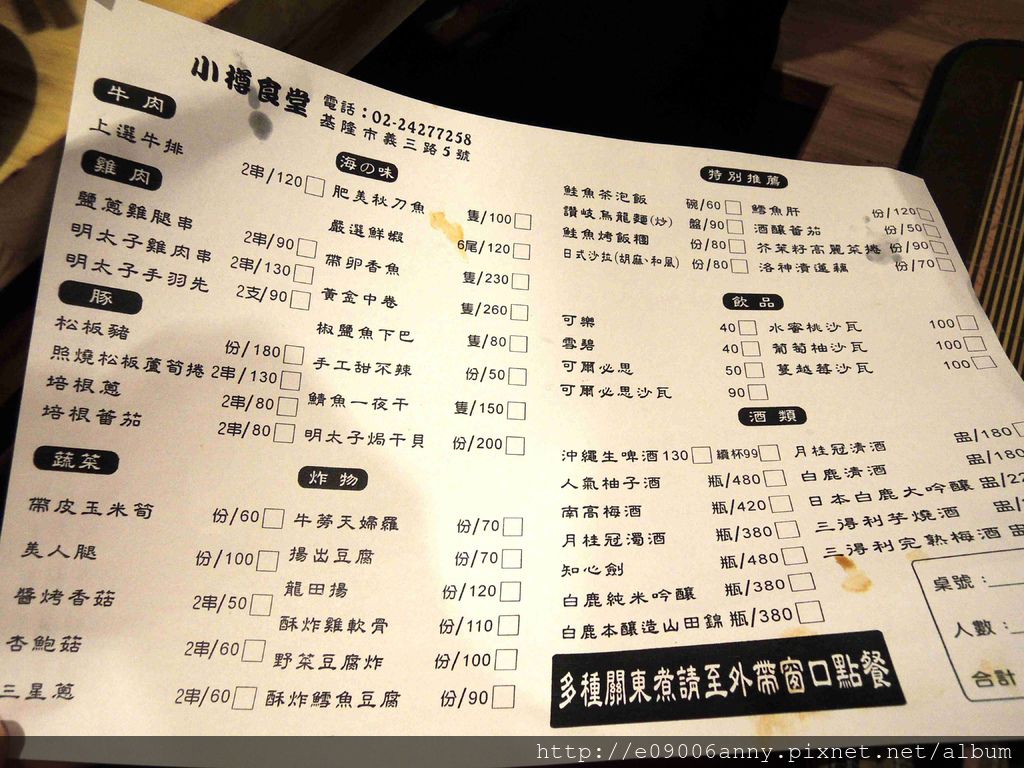 小樽食堂
電話：02-24277258
基隆市義三路5號
牛肉
上選牛排 2串/120
雞肉
鹽蔥雞腿串 2串/90
明太子雞肉串 2串/130
明太子手羽先 2支/90
豚
松板豬 份/180
照燒松板蘆筍捲 2串/130
培根蔥 2串/80
培根蕃茄 2串/80
蔬菜
帶皮玉米筍 份/60
美人腿 份/100
醬烤香菇 2串/50
杏鮑菇 2串/60
三星蔥 2串/60
海の味
肥美秋刀魚 隻/100
嚴選鮮蝦 6尾/120
帶卵香魚 隻/230
黃金中卷 隻/260
椒鹽魚下巴 隻/80
手工甜不辣 份/50
鯖魚一夜干 隻/150
明太子焗干貝 份/200
炸物
牛蒡天婦羅 份/70
揚出豆腐 份/70
龍田揚 份/120
酥炸雞軟骨 份/110
野菜豆腐炸 份/100
酥炸鱈魚豆腐 份/90
特別推薦
鮭魚茶泡飯 碗/60 鱈魚肝 份/120
讚岐烏龍麵(炒) 盤/90 酒釀蕃茄 份/50
鮭魚烤飯糰 份/80 芥茉籽高麗菜捲 份/90
日式沙拉(胡麻、和風) 份/80 洛神漬蓮藕 份/70
飲品
可樂 40 水蜜桃沙瓦 100
雪碧 40 葡萄柚沙瓦 100
可爾必思 50 蔓越莓沙瓦 100
可爾必思沙瓦 90
酒類
沖繩生啤酒 130 續杯99 月桂冠清酒 盅/180
人氣柚子酒 瓶/480 白鹿清酒 盅/180
南高梅酒 瓶/420 日本白鹿大吟釀 盅/22
月桂冠濁酒 瓶/380 三得利芋燒酒 盅/
知心劍 瓶/480 三得利完熟梅酒 盅
白鹿純米吟釀 瓶/380
白鹿本釀造山田錦 瓶/380
多種關東煮請至外帶窗口點餐
桌號：
人數：
合計
http://e09006anny.pixnet.net/album